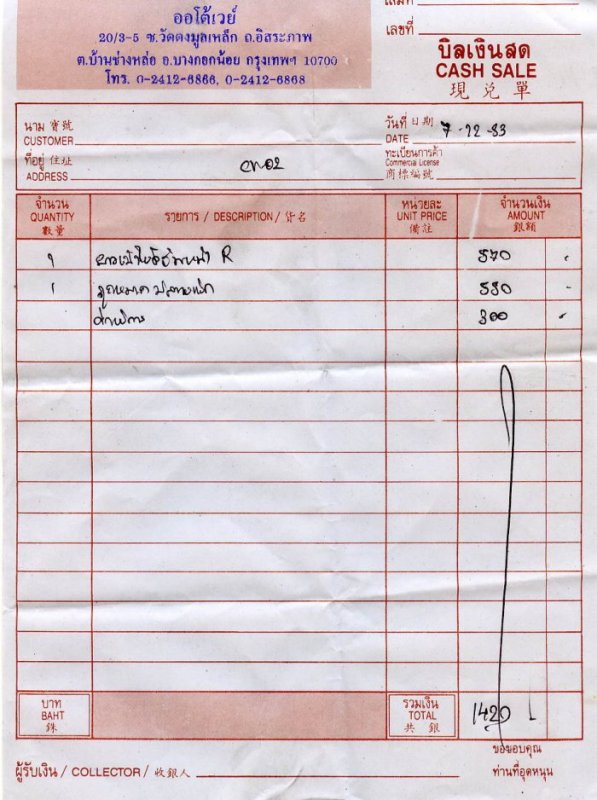 ออโต้เวย์
20/3-5 ซ.วัดดงมูลเหล็ก ถ.อิสระภาพ
ต.บ้านช่างหล่อ อ.บางกอกน้อย กรุงเทพฯ 10700
โทร. 0-2412-6866, 0-2412-6868
เล่มที่
เลขที่
บิลเงินสด
CASH SALE
現兌單
นาม 寶號
CUSTOMER
วันที่ 日期
DATE 7-12-53
ที่อยู่ 住址
ADDRESS
ทะเบียนการค้า
Commercial License
商標編號
จำนวน QUANTITY 數量 รายการ / DESCRIPTION / 貨名 หน่วยละ UNIT PRICE 備註 จำนวนเงิน AMOUNT 銀額
1 R 570 -
1 550 -
300 -
บาท BAHT 銖 รวมเงิน TOTAL 共銀 1420
ผู้รับเงิน / COLLECTOR / 收銀人
ขอขอบคุณ
ท่านที่อุดหนุน